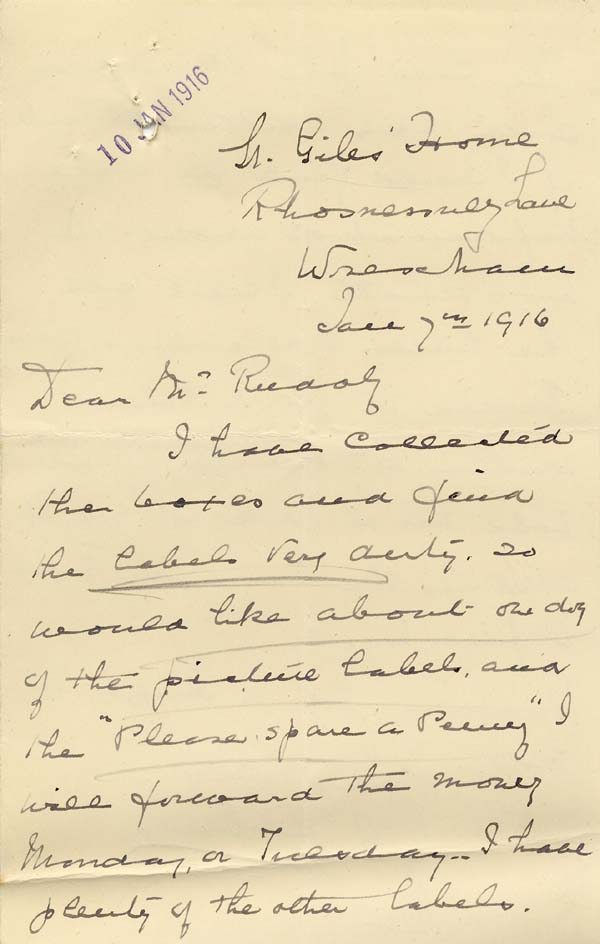 10 JAN 1916
St. Giles' Home
Rhosnesney Lane
Wrexham
Jan 7th 1916
Dear Mr Rudolf
I have collected
ther boxes and find
the labels very durty. so
would like about one doz
of the picture labels, and
the "Please spare a Penny" I
will forward the money
Monday, or Tuesday - I have
plenty of the other labels.